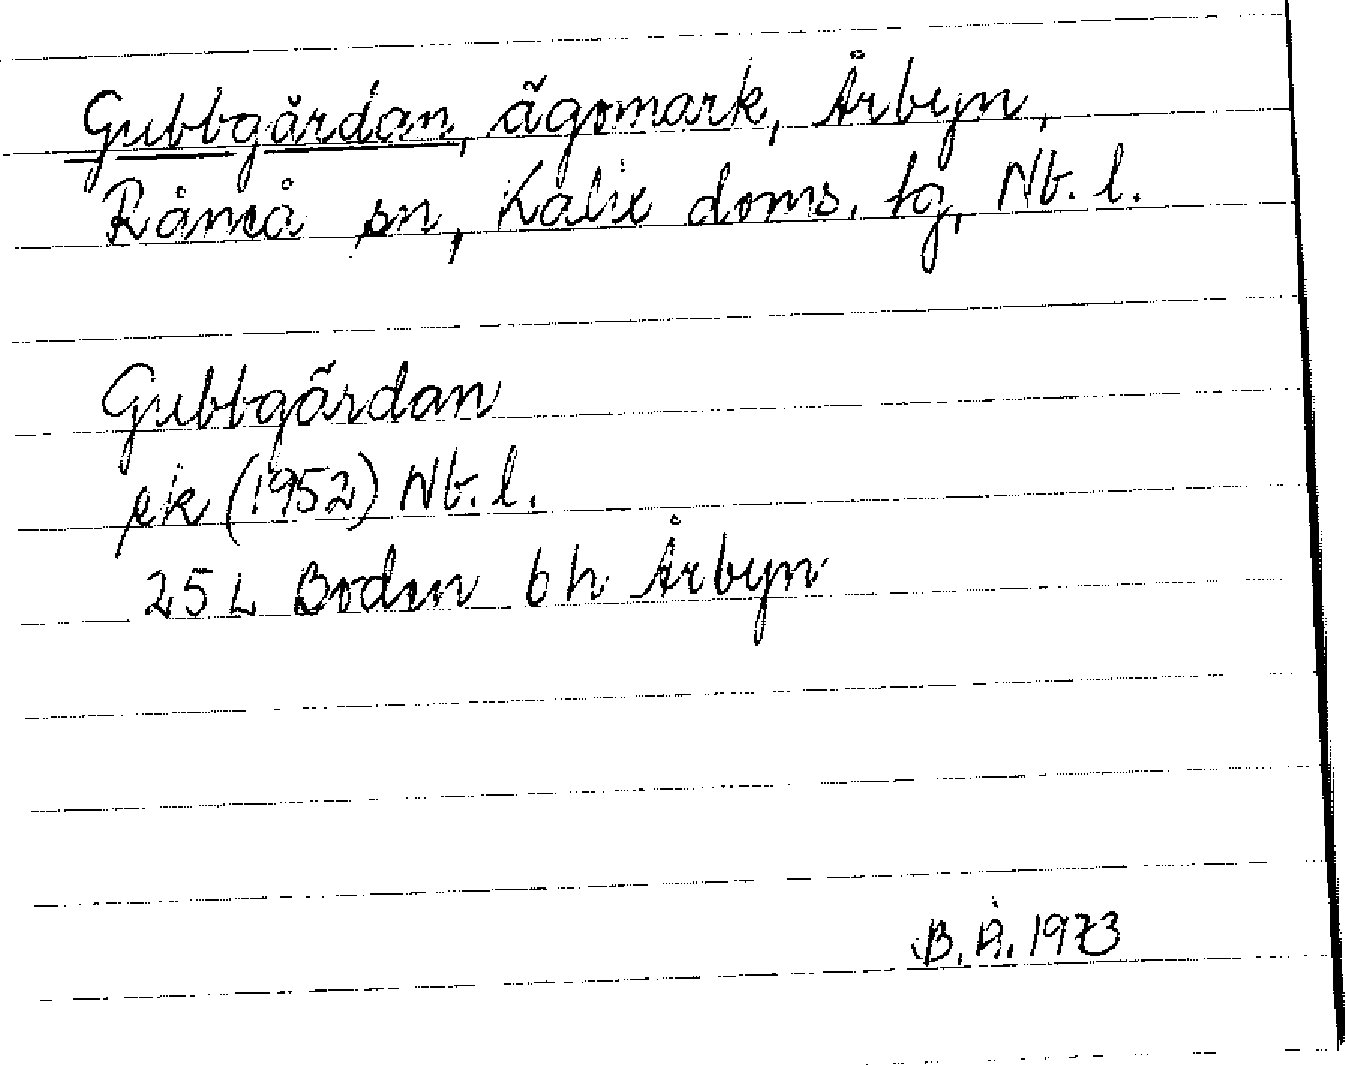 Gubbgärdan, ägomark, Årbyn,
Råneå sn, Kalix doms. tg, Nb. l.
Gubbgärdan
ek (1952) Nb. l.
25 L Boden 6 h Årbyn
B. Å. 1973